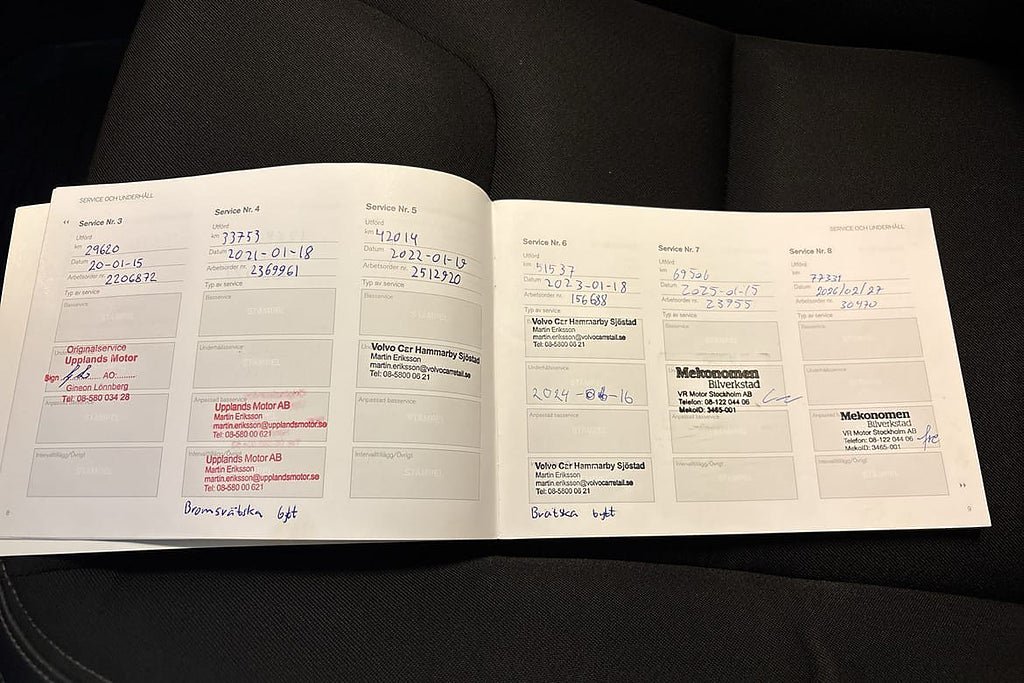 SERVICE OCH UNDERHÅLL
Service Nr. 3
Utförd
km 29620
Datum 20-01-15
Arbetsorder nr. 2206872
Typ av service
Basservice
Originalservice
Upplands Motor
Sign AO:........
Gineon Lönnberg
Tel: 08-580 034 28
Anpassad basservice
Intervalltillägg/Övrigt
8
Service Nr. 4
Utförd
km 33753
Datum 2021-01-18
Arbetsorder nr. 2369961
Typ av service
Basservice
STÄMPEL
Underhållsservice
STÄMPEL
Upplands Motor AB
Martin Eriksson
martin.eriksson@upplandsmotor.se
Tel: 08-580 00 621
Upplands Motor AB
Martin Eriksson
martin.eriksson@upplandsmotor.se
Tel: 08-580 00 621
Bromsvätska bytt
Service Nr. 5
Utförd
km 42014
Datum 2022-01-19
Arbetsorder nr. 2512920
Typ av service
Basservice
STÄMPEL
Volvo Car Hammarby Sjöstad
Martin Eriksson
martin.eriksson@volvocarretail.se
Tel: 08-5800 06 21
Anpassad basservice
STÄMPEL
Intervalltillägg/Övrigt
STÄMPEL
SERVICE OCH UNDERHÅLL
Service Nr. 6
Utförd
km 51537
Datum 2023-01-18
Arbetsorder nr. 156688
Typ av service
Volvo Car Hammarby Sjöstad
Martin Eriksson
martin.eriksson@volvocarretail.se
Tel: 08-5800 06 21
Underhållsservice
Anpassad basservice
STÄMPEL
Volvo Car Hammarby Sjöstad
Martin Eriksson
martin.eriksson@volvocarretail.se
Tel: 08-5800 06 21
Brvätska bytt
Service Nr. 7
Utförd
km 69506
Datum 2025-01-15
Arbetsorder nr. 23955
Typ av service
Basservice
STÄMPEL
Mekonomen
Bilverkstad
VR Motor Stockholm AB
Telefon: 08-122 044 06
MekoID: 3465-001
Intervalltillägg/Övrigt
STÄMPEL
Service Nr. 8
Utförd
km 77331
Datum 2026/02/27
Arbetsorder nr. 30470
Typ av service
Basservice
STÄMPEL
Underhållsservice
STÄMPEL
Mekonomen
Bilverkstad
VR Motor Stockholm AB
Telefon: 08-122 044 06
MekoID: 3465-001
Intervalltillägg/Övrigt
STÄMPEL
9